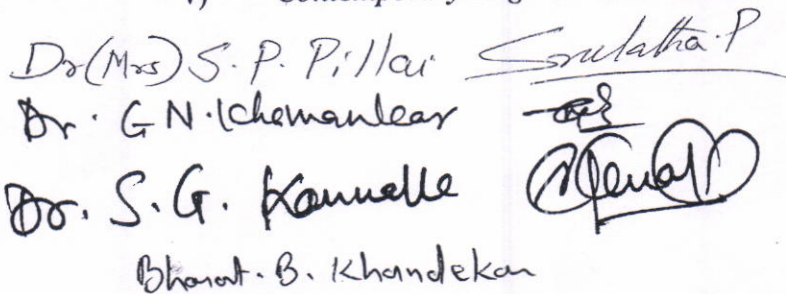 Dr (Mrs) S. P. Pillai Srulatha. P
Dr. G N. Khamankar
Dr. S. G.
Bharat. B. Khandekar